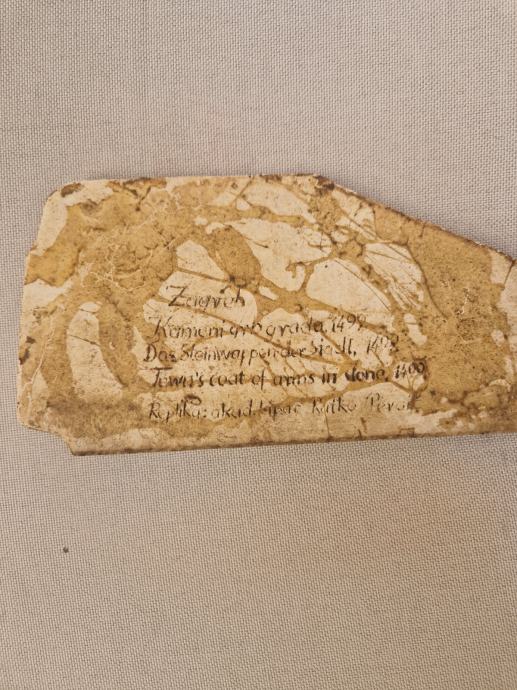 Zagreb
Kameni grb grada, 1499
Das Steinwappen der Stadt, 1499
Town's coat of arms in stone, 1499
Replika: akad. kipar Ratko